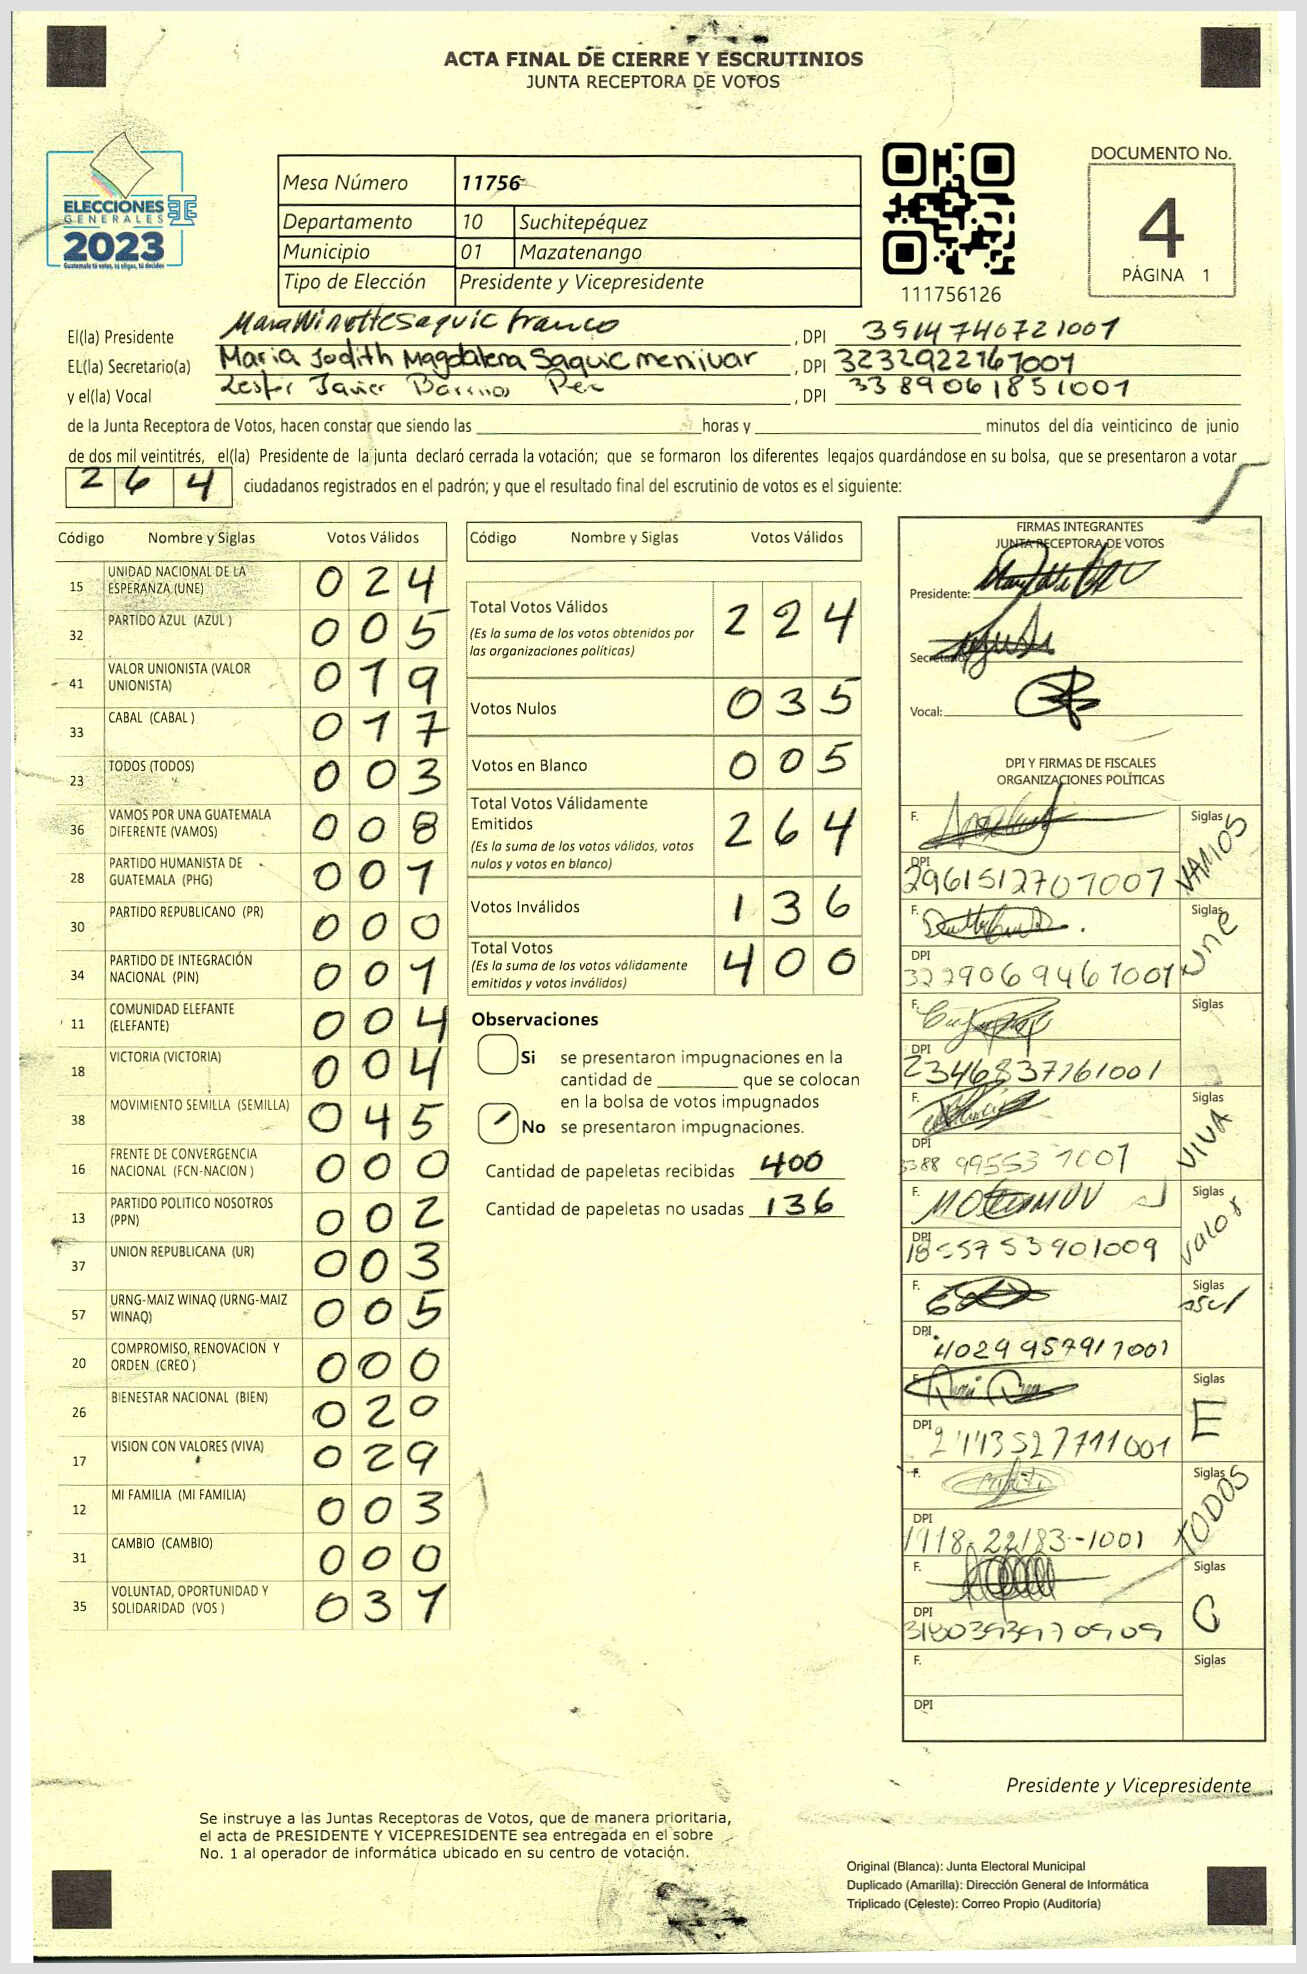 ACTA FINAL DE CIERRE Y ESCRUTINIOS
JUNTA RECEPTORA DE VOTOS
ELECCIONES
GENERALES
2023
Guatemala tú votas, tú eliges, tú decides
Mesa Número 11756
Departamento 10 Suchitepéquez
Municipio 01 Mazatenango
Tipo de Elección Presidente y Vicepresidente
111756126
DOCUMENTO No.
4
PÁGINA 1
El(la) Presidente Saquic Franco, DPI 3514740721001
EL(la) Secretario(a) Maria Judith Magdalena Saquic menjivar, DPI 3232922167001
y el(la) Vocal Javier, DPI 3389061851001
de la Junta Receptora de Votos, hacen constar que siendo las horas y minutos del día veinticinco de junio
de dos mil veintitrés, el(la) Presidente de la junta declaró cerrada la votación; que se formaron los diferentes legajos guardándose en su bolsa, que se presentaron a votar
264 ciudadanos registrados en el padrón; y que el resultado final del escrutinio de votos es el siguiente:
Código Nombre y Siglas Votos Válidos
15 UNIDAD NACIONAL DE LA ESPERANZA (UNE) 024
32 PARTIDO AZUL (AZUL ) 005
41 VALOR UNIONISTA (VALOR UNIONISTA) 019
33 CABAL (CABAL ) 017
23 TODOS (TODOS) 003
36 VAMOS POR UNA GUATEMALA DIFERENTE (VAMOS) 008
28 PARTIDO HUMANISTA DE GUATEMALA (PHG) 001
30 PARTIDO REPUBLICANO (PR) 000
34 PARTIDO DE INTEGRACIÓN NACIONAL (PIN) 001
11 COMUNIDAD ELEFANTE (ELEFANTE) 004
18 VICTORIA (VICTORIA) 004
38 MOVIMIENTO SEMILLA (SEMILLA) 045
16 FRENTE DE CONVERGENCIA NACIONAL (FCN-NACION ) 000
13 PARTIDO POLITICO NOSOTROS (PPN) 002
37 UNION REPUBLICANA (UR) 003
57 URNG-MAIZ WINAQ (URNG-MAIZ WINAQ) 005
20 COMPROMISO, RENOVACION Y ORDEN (CREO ) 000
26 BIENESTAR NACIONAL (BIEN) 020
17 VISION CON VALORES (VIVA) 029
12 MI FAMILIA (MI FAMILIA) 003
31 CAMBIO (CAMBIO) 000
35 VOLUNTAD, OPORTUNIDAD Y SOLIDARIDAD (VOS ) 031
Código Nombre y Siglas Votos Válidos
Total Votos Válidos 224
(Es la suma de los votos obtenidos por
las organizaciones políticas)
Votos Nulos 035
Votos en Blanco 005
Total Votos Válidamente
Emitidos 264
(Es la suma de los votos válidos, votos
nulos y votos en blanco)
Votos Inválidos 136
Total Votos 400
(Es la suma de los votos válidamente
emitidos y votos inválidos)
Observaciones
Si se presentaron impugnaciones en la
cantidad de que se colocan
en la bolsa de votos impugnados
No se presentaron impugnaciones.
Cantidad de papeletas recibidas 400
Cantidad de papeletas no usadas 136
FIRMAS INTEGRANTES
JUNTA RECEPTORA DE VOTOS
Presidente:
Secretario:
Vocal:
DPI Y FIRMAS DE FISCALES
ORGANIZACIONES POLÍTICAS
F. Siglas VAMOS
DPI 2961512707007
F. Siglas UNE
DPI 3229069461001
F. Siglas
DPI 2346837261001
F. Siglas VIVA
DPI 3388 99553 1001
F. Siglas Valor
DPI 1855753901009
F. Siglas
DPI 4029957911001
F. Siglas E
DPI
F. Siglas TODOS
DPI 1918-22183-1001
F. Siglas C
DPI
F. Siglas
DPI
Presidente y Vicepresidente
Se instruye a las Juntas Receptoras de Votos, que de manera prioritaria,
el acta de PRESIDENTE Y VICEPRESIDENTE sea entregada en el sobre
No. 1 al operador de informática ubicado en su centro de votación.
Original (Blanca): Junta Electoral Municipal
Duplicado (Amarilla): Dirección General de Informática
Triplicado (Celeste): Correo Propio (Auditoría)